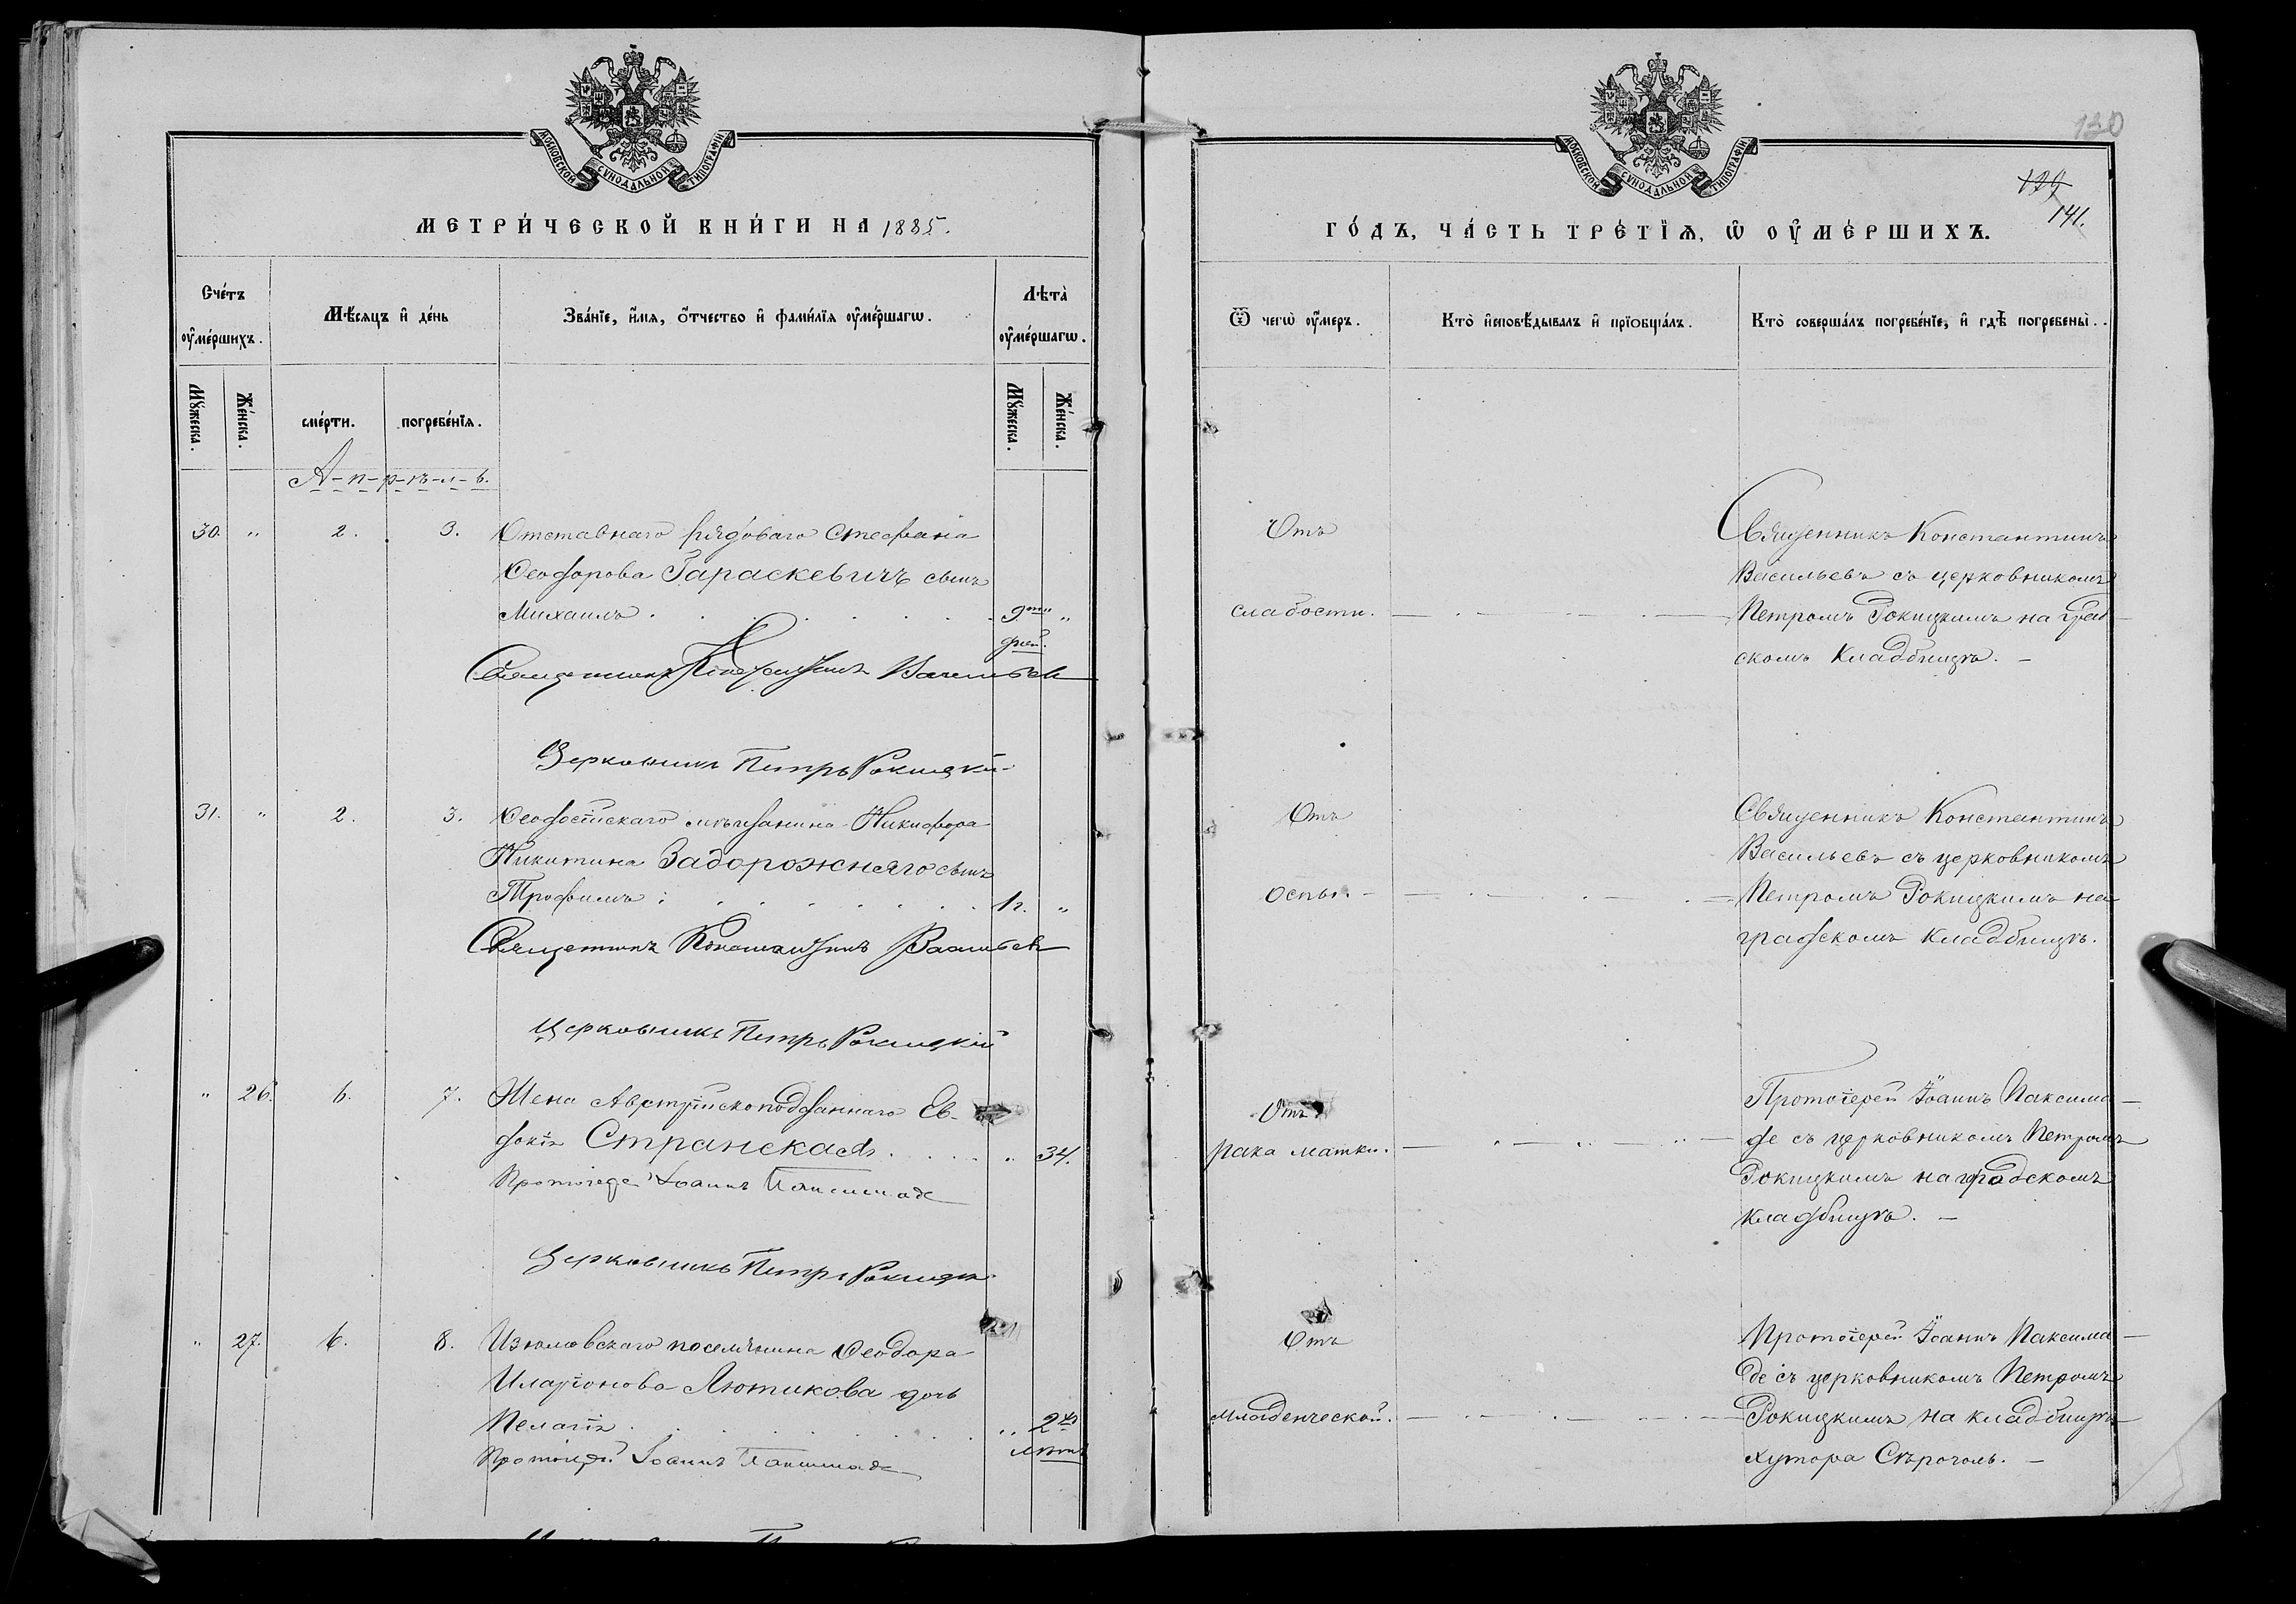 МОСКОВСКОЙ СѴНОДАЛЬНОЙ ТИПОГРАФІИ
МЕТРИ́ЧЕСКОЙ КНИ́ГИ НА 1885.
Сче́тъ оу҆ме́ршихъ.
Мѣ́сяцъ и҆ де́нь
Зва́нїе, и҆́мя, ѻ҆́тчество и҆ фами́лїя оу҆ме́ршагѡ.
Лѣта̀ оу҆ме́ршагѡ.
Мꙋ́жеска.
Же́нска.
сме́рти.
погребе́нїѧ.
Мꙋ́жеска.
Же́нска.
А-п-р-ѣ-л-ь.
30. " 2. 3. Отставнаго рядоваго Стефана
Ѳеодорова Тараскевичъ сынъ
Михаилъ . . . . . . 9ти "
дней.
Священникъ Константинъ Васильевъ
Церковникъ Петръ Рокицкій
31. " 2. 3. Ѳеодосійскаго мѣщанина Никифора
Никитина Задорожняго сынъ
Трофимъ . . . . . . "
Священникъ Константинъ Васильевъ
Церковникъ Петръ Рокицкій
" 26. 6. 7. Жена Австрійскоподданнаго Ев-
докія Странская . . . . " 34.
Протоіерей Іоаннъ Паксимаде
Церковникъ Петръ Рокицкій
" 27. 6. 8. Изюмовскаго поселянина Ѳеодора
Иларіонова Лютикова дочь
Пелагія . . . . . . " 2хъ
лѣтъ
Протоіерей Іоаннъ Паксимаде
МОСКОВСКОЙ СѴНОДАЛЬНОЙ ТИПОГРАФІИ
130
129
141.
ГО́ДЪ, ЧА́СТЬ ТРЕ́ТЇѦ, Ѡ҆ ОУ҆МЕ́РШИХЪ.
Ѿ чегѡ̀ оу҆́меръ.
Кто̀ и҆сповѣ́дывалъ и҆ прїобща́лъ.
Кто̀ соверша́лъ погребе́нїе, и҆ гдѣ̀ погребены̀.
Отъ
слабости.
Священникъ Константинъ
Васильевъ съ церковникомъ
Петромъ Рокицкимъ на град-
скомъ кладбищѣ. —
Отъ
оспы. —
Священникъ Константинъ
Васильевъ съ церковникомъ
Петромъ Рокицкимъ на
градскомъ кладбищѣ.
Отъ
рака матки.
Протоіерей Іоаннъ Паксима-
де съ церковникомъ Петромъ
Рокицкимъ на градскомъ
кладбищѣ. —
Отъ
младенческой.
Протоіерей Іоаннъ Паксима-
де съ церковникомъ Петромъ
Рокицкимъ на кладбищѣ
хутора Сѣроголь. —